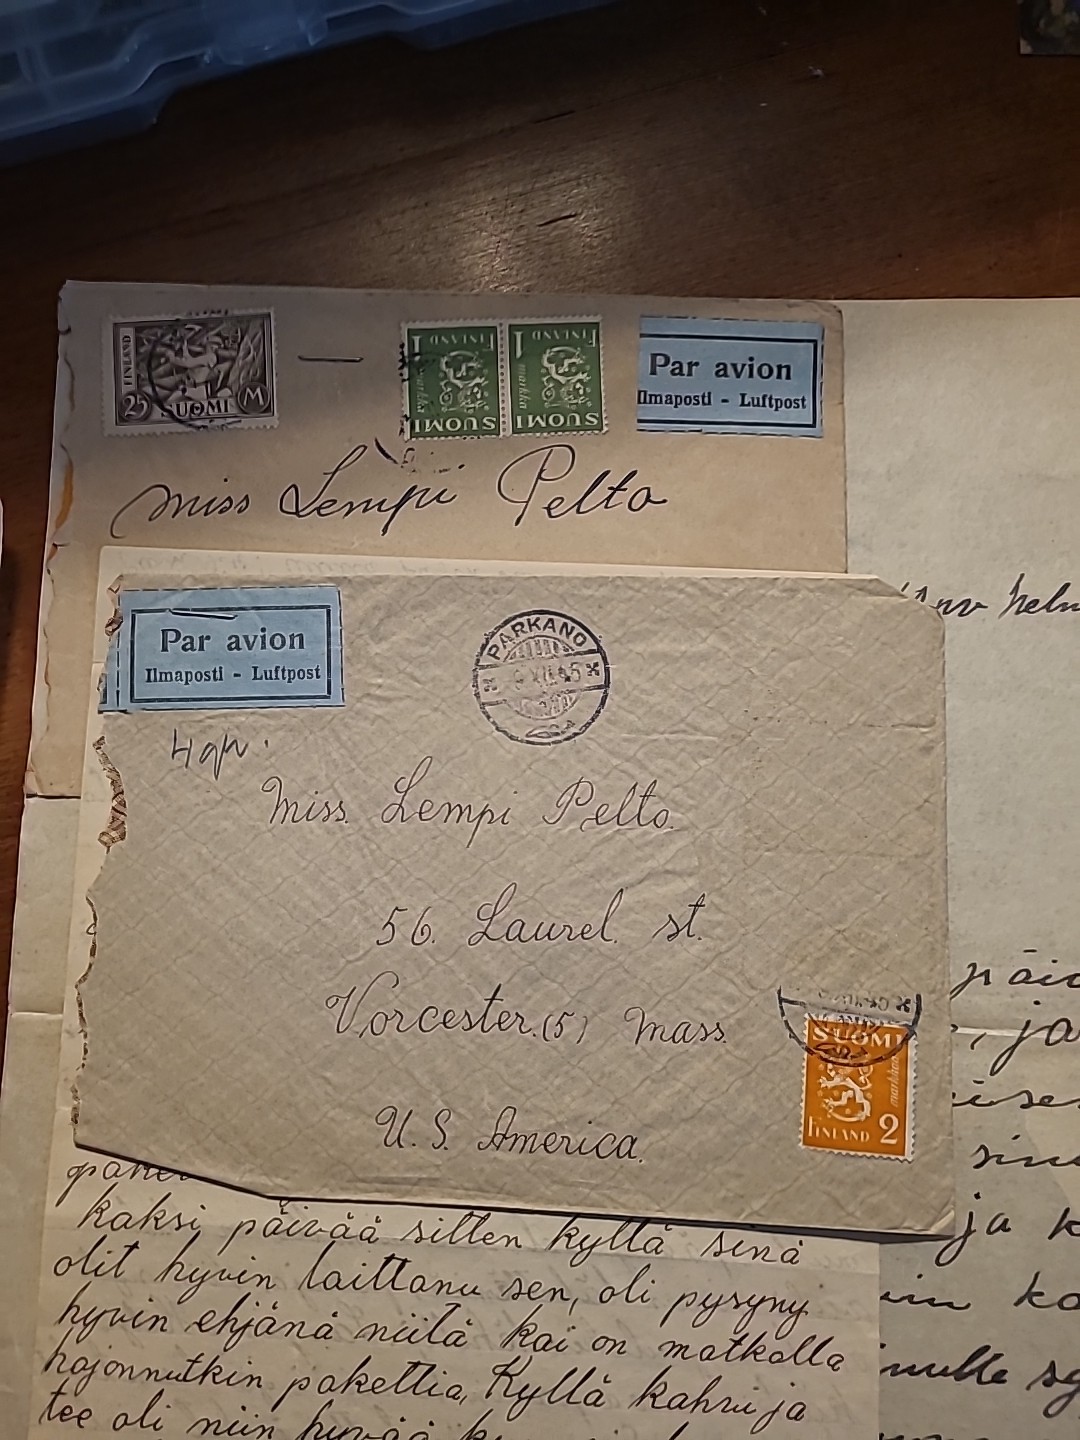 FINLAND
25 SUOMI M
FINLAND 1 markka SUOMI
FINLAND 1 markka SUOMI
Par avion
Ilmaposti - Luftpost
Miss Lempi Pelto
Par avion
Ilmaposti - Luftpost
PARKANO
XII 45
4 gr.
Miss. Lempi Pelto.
56. Laurel. st.
Vorcester. (5) Mass.
U. S. America.
SUOMI
markkaa
FINLAND 2
kaksi päivää sitten kyllä sinä
olit hyvin laittanu sen, oli pysyny
hyvin ehjänä niitä kai on matkalla
hajonnutkin pakettia, Kyllä kahvi ja
tee oli niin hyvää
päiv
, ja
sinu
ja k
ko
sy